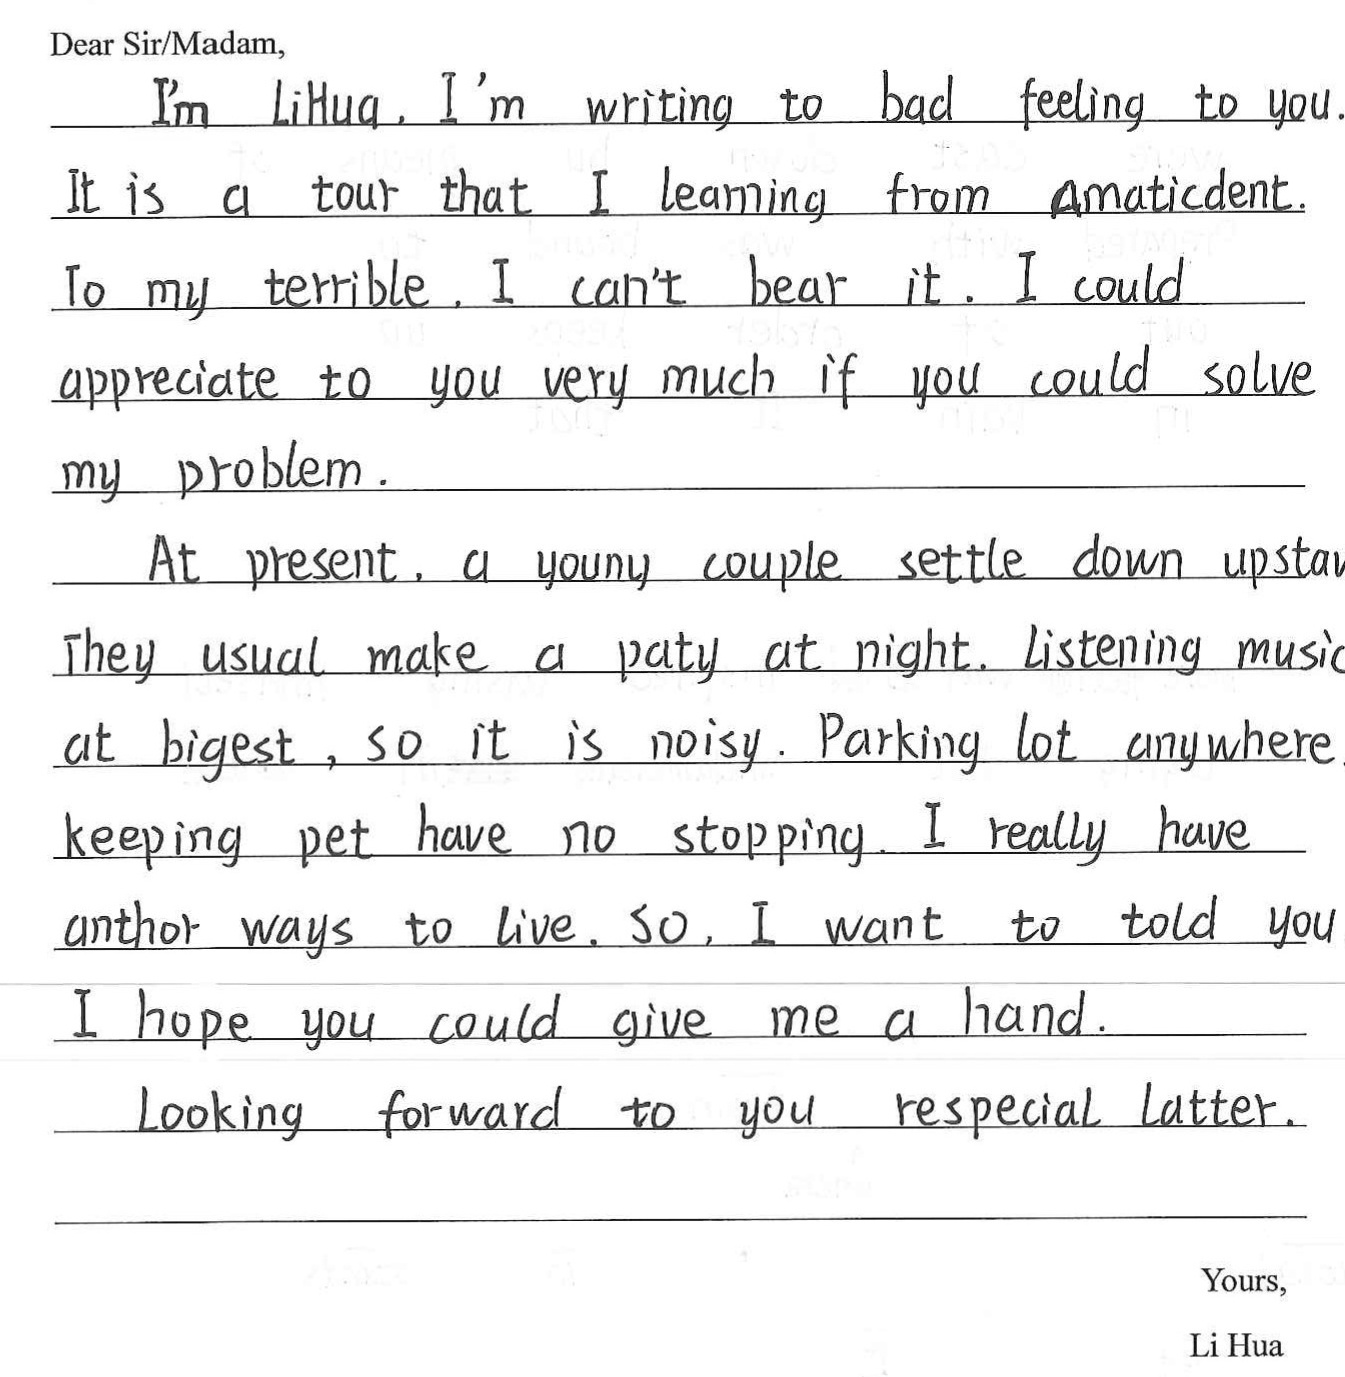 Dear Sir/Madam,
I'm LiHua. I'm writing to bad feeling to you.
It is a tour that I learning from Amaticdent.
To my terrible. I can't bear it. I could
appreciate to you very much if you could solve
my problem.
At present. a youny couple settle down upstai
They usual make a paty at night. Listening music
at bigest, so it is noisy. Parking lot anywhere.
keeping pet have no stopping. I really have
anthor ways to live. So, I want to told you
I hope you could give me a hand.
Looking forward to you respecial latter.
Yours,
Li Hua